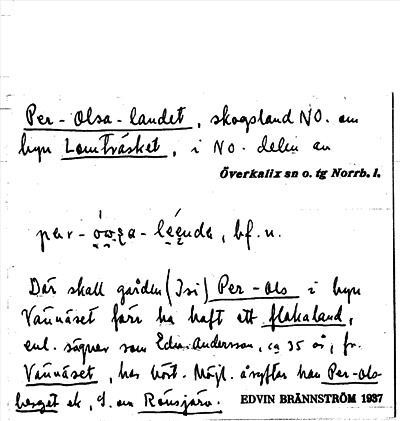 Per-Olsa-landet, skogsland NO. om
byn Lomträsket, i NO. delen av
Överkalix sn o. tg Norrb. l.
bf. n.
Där skall gården (Isi) Per-Ols i byn
Vännäset förr ha haft ett flakaland,
enl. sägner som Edv. Andersson, ca 35 år, fr.
Vännäset, har hört. Möjl. åsyftas han Per-Ols-
berget ok, jf. om
EDVIN BRÄNNSTRÖM 1937